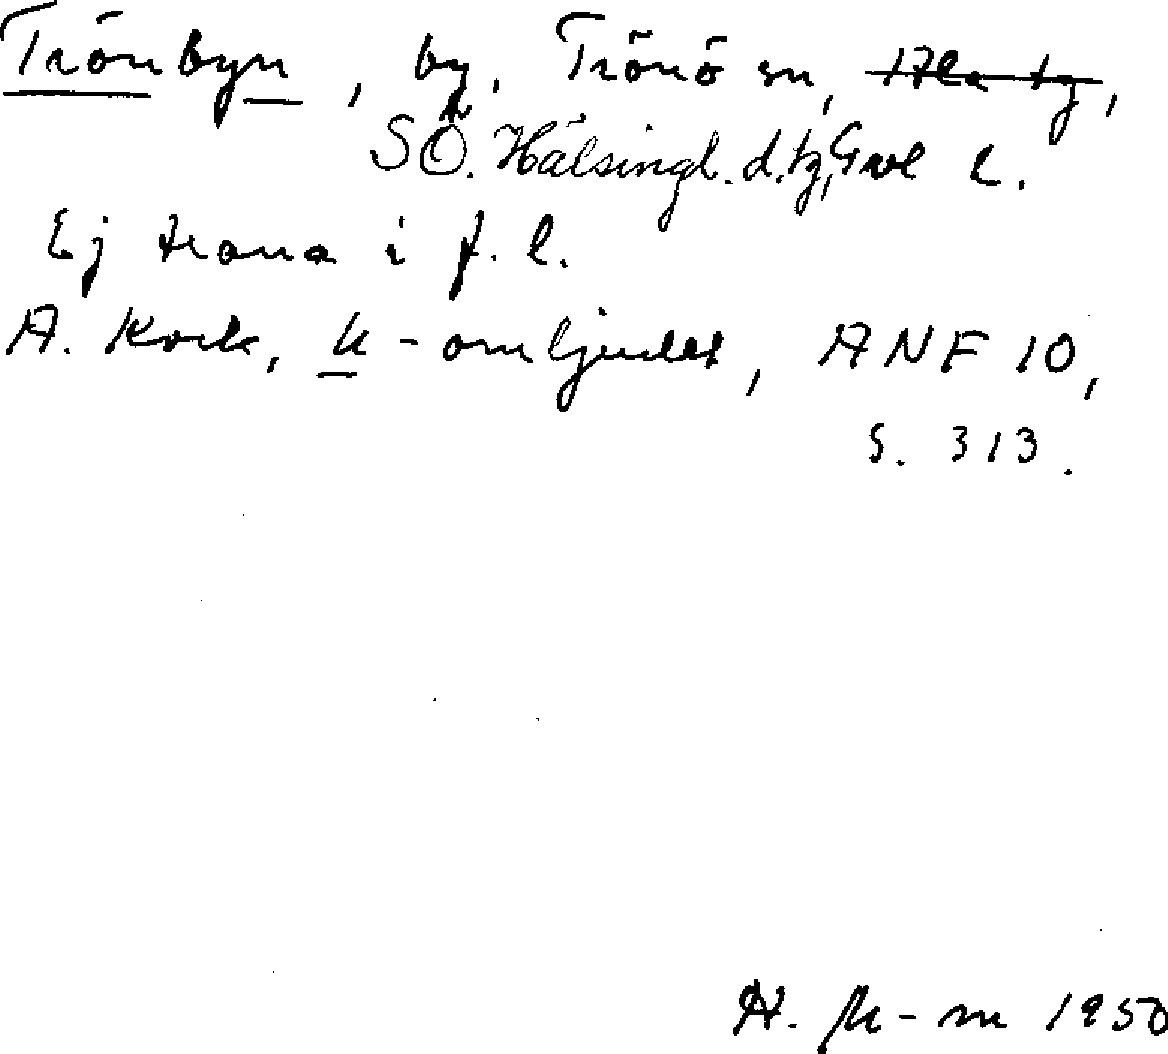 Trönbyn, by, Trönö sn, Ala tg,
SÖ. Hälsingl. d.tg, Gvl L.
Ej trana i f. l.
A. Kock, u-omljudet, ANF 10,
s. 313.
1950